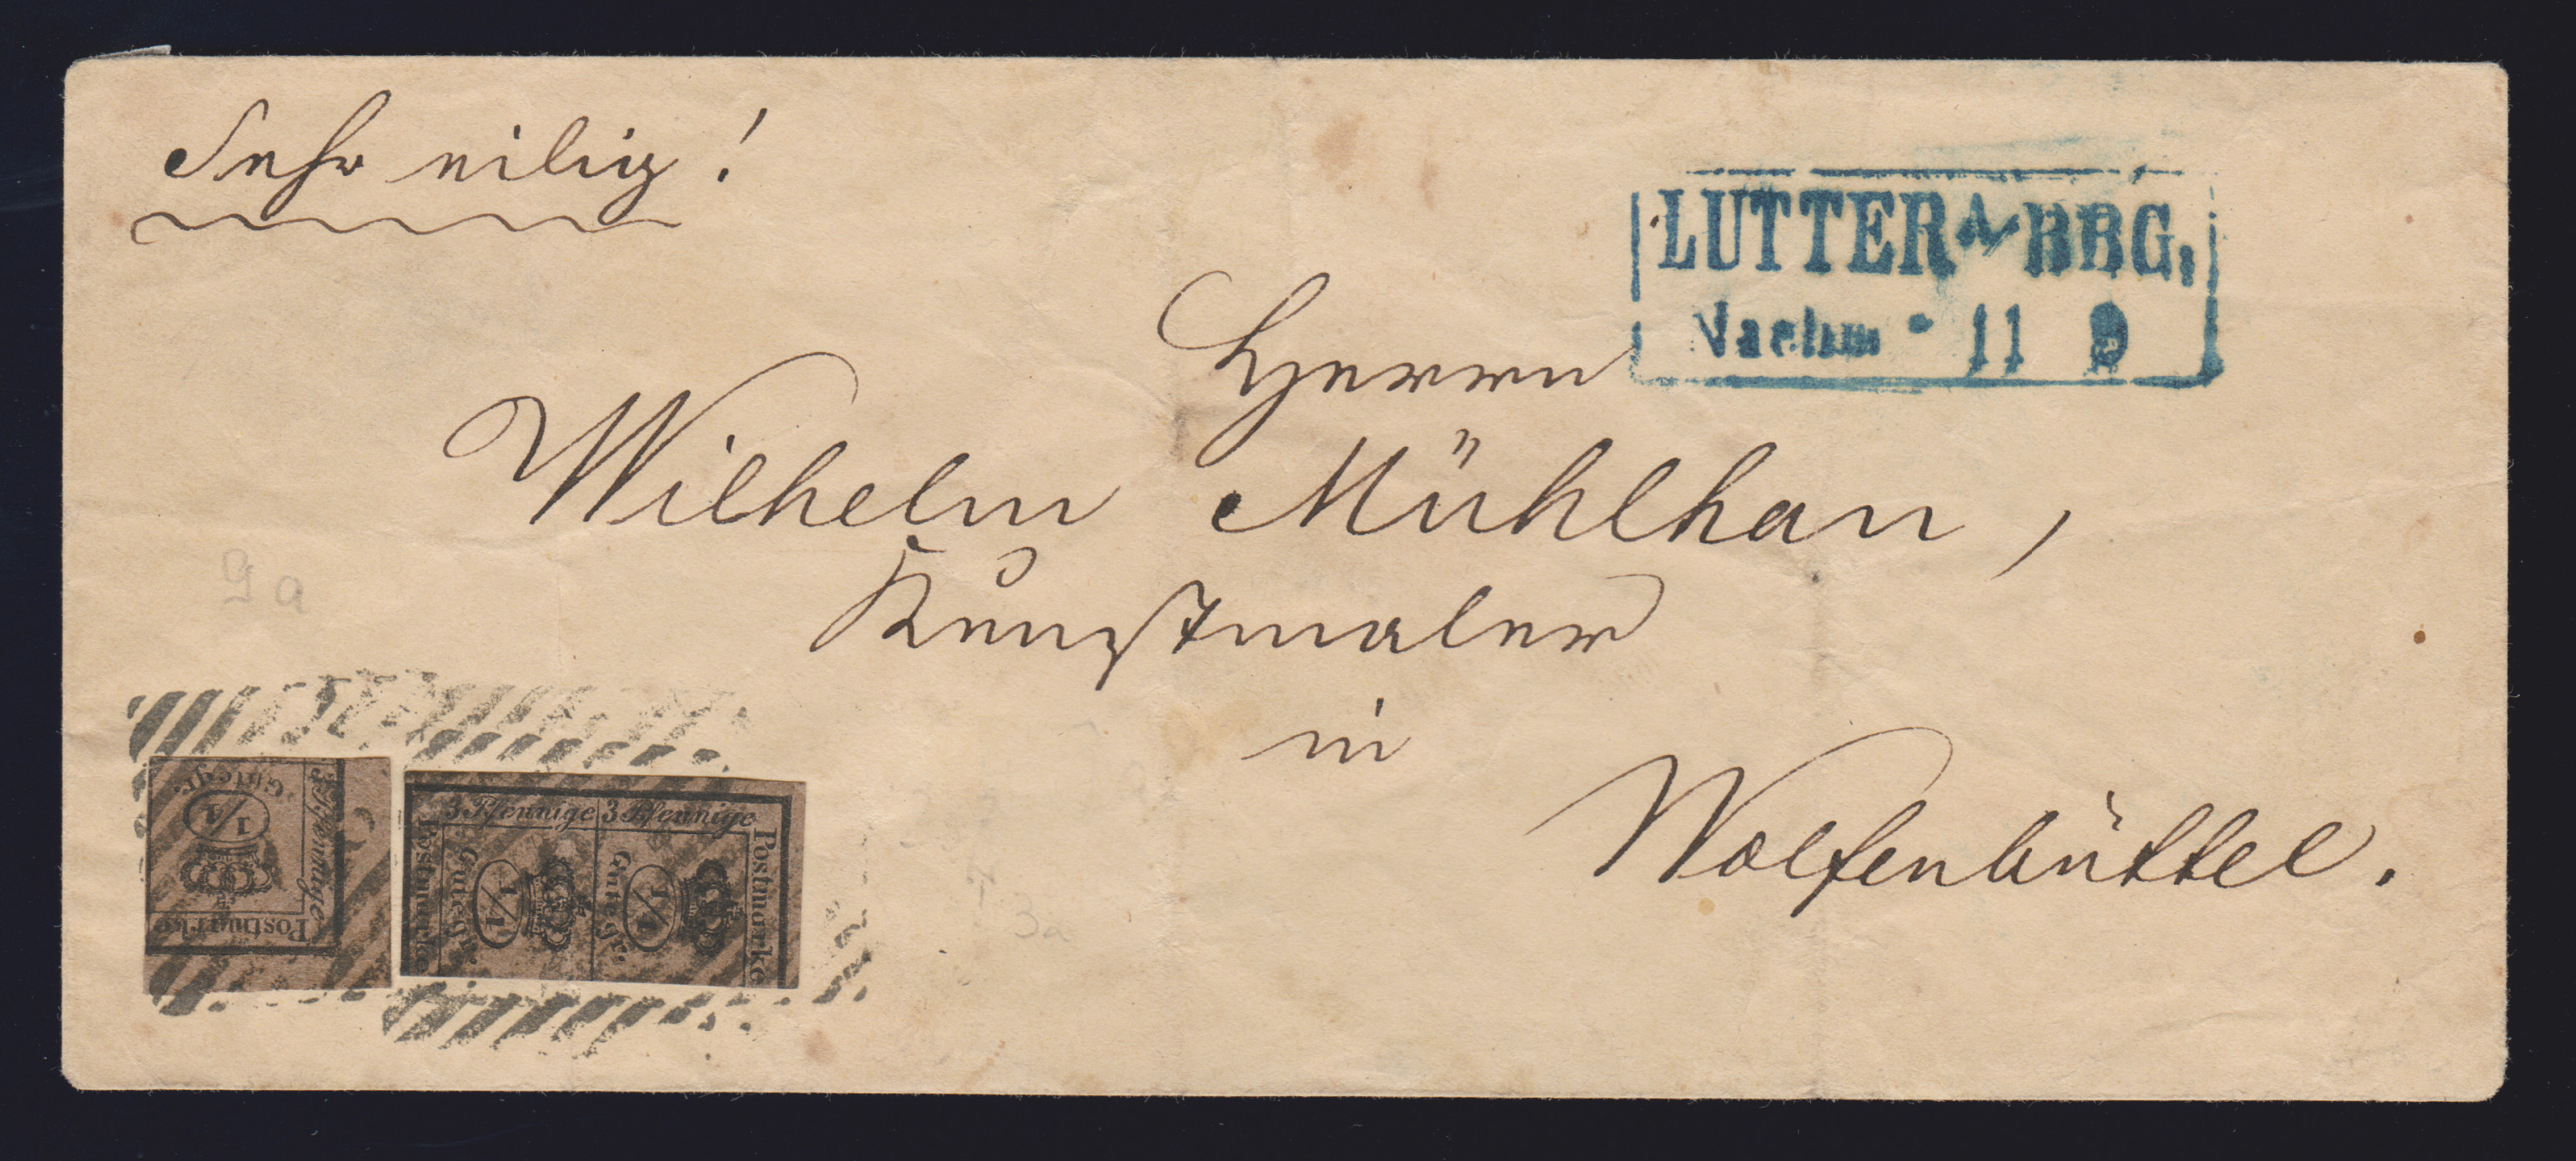 Sehr eilig!
LUTTER A/BBG.
Nachm 11 9
Herrn
Wilhelm Mühlhan,
Kunstmaler
in
Wolfenbüttel.
9a
3a
3 Pfennige
Gutegr.
1/4
Postmarke
3 Pfennige 3 Pfennige
Postmarke
Gutegr.
1/4
Gutegr.
1/4
Postmarke